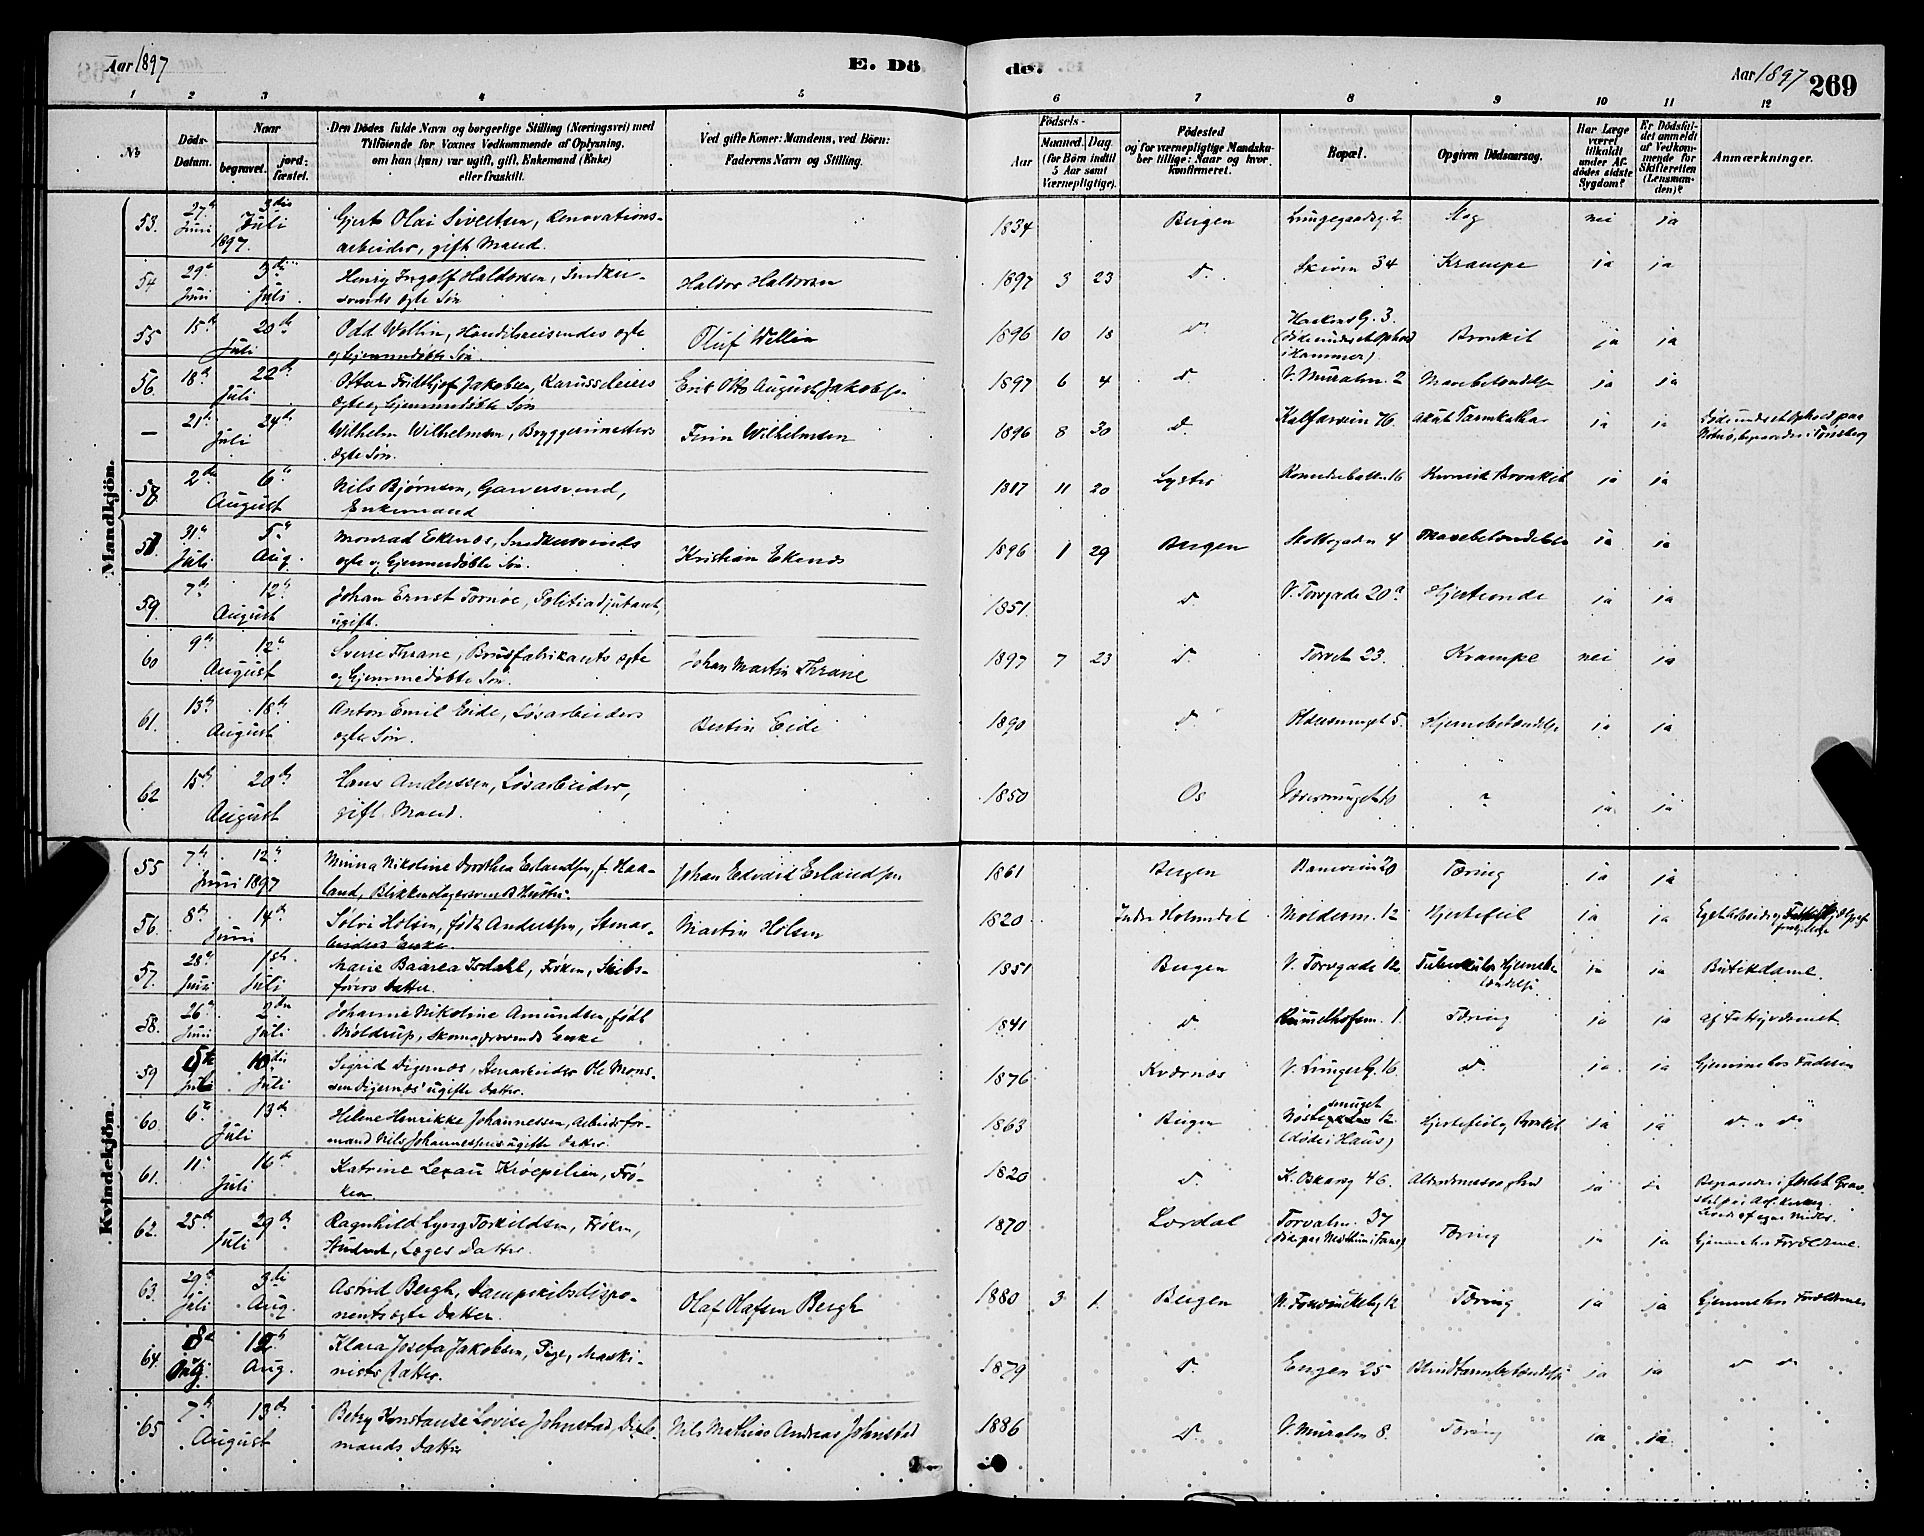 Aar 1897
E. Dö
de.
Aar 1897
269
1 2 3 4 5 6 7 8 9 10 11 12
No
Döds-Datum.
Naar
begravet.
jordfæstet.
Den Dödes fulde Navn og borgerlige Stilling (Næringsvei) med
Tilföiende for Voxnes Vedkommende af Oplysning,
om han (hun) var ugift, gift, Enkemand (Enke)
eller fraskilt.
Ved gifte Koner: Mandens, ved Börn:
Faderens Navn og Stilling.
Födsels-
Aar
Maaned. Dag
(for Börn indtil
5 Aar samt
Værnepligtige).
Födested
og for værnepligtige Mandskaber tillige: Naar og hvor
konfirmeret.
Bopæl.
Opgiven Dödsaarsag.
Har Læge
været
tilkaldt
under Afdödes sidste
Sygdom?
Er Dödsfaldet anmeldt
af Vedkommende for
Skifteretten
(Lensmanden)?
Anmærkninger.
Mandkjön.
53. 27de Juni 1897. 3die Juli Gjert Olai Sivertsen, Renovations-
arbeider, gift Mand. 1834 Bergen Lungegaardsg. 2 Slag nei ja
54 29de Juni 3die Juli Henry Ingolf Haldorsen, Snedker-
svends ægte Søn Haldor Haldorsen 1897 3 23 d. Skiven 34 Krampe ja ja
55 15de 20de Juli Odd Wellin, Handelsreisendes ægte
og hjemmedøbte Søn. Oluf Wellin 1896 10 18 d. Haakens G. 3. Bronkit ja ja
56. 18de 22de Juli Ottar Fridthjof Jakobsen, Karusseleiers
ægte og hjemmedøbte Søn Erik Otto August Jakobsen 1897 6 4 d. V. Muralm. 2 Mavebetændelse ja ja
— 21de 24de Juli Wilhelm Wilhelmsen, Bryggerimesters
ægte Søn. Finn Wilhelmsen 1896 8 30 d. Kalfarvein 76. akut Tarmkathar ja ja Døde under et Ophold paa
Nøtterø, begravedes i Tønsberg
58 2den 6te August Nils Bjørnsen, Garversvend,
Enkemand 1817 11 20 Lyster 16 Kronisk Bronkit ja ja
57 31te Juli 5te Aug. Monrad Ekenes, Snedkersvends
ægte og hjemmedøbte Søn. Kristian Ekenes 1896 1 29 Bergen 4 Mavebetændelse ja ja
59. 7de 12te August Johan Ernst Tornøe, Politiadjutant,
ugift. 1851. d. V. Torvgade 20a Hjerteonde ja ja
60 9de 12te August Sverre Thrane, Brusfabrikants ægte
og hjemmedøbte Søn. Johan Martin Thrane 1897 7 23 d. Torvet 23. Krampe nei ja
61. 13de 18de August Anton Emil Eide, Løsarbeiders
ægte Søn. Bertin Eide 1890 d. 5. Hjernebetændelse ja ja
62 15de 20de August Hans Anderssen, Løsarbeider,
gift Mand. 1850 Os ? ja ja
Kvindekjön.
55 7de 12te Juni 1897 Minna Nikoline Dorothea Erlandsen, f. Haa-
land, Blikkenslagersvends Hustru. Johan Edvard Erlandsen 1861 Bergen Baneveien 20 Tæring ja ja
56. 8de 14de Juni Sølvi Holsen, født Andersen, Stenar-
beiders Enke. Martin Holsen 1820 Indre Holmedal Moldesm. 12 Hjertefeil ja ja Eget Arbeide og
57. 28de Juni 1ste Juli Marie Baarea Isdahl, Frøken, Skibs-
førers Datter. 1851 Bergen V. Torvgade 12 Tuberkuløs Hjernebe-
tændelse ja ja Butikdame.
58. 26de Juni 2den Juli Johanne Nikoline Amundsen, født
Møldrup, Skomagersvends Enke 1841 d. Rømelhofsm. 1. Tæring ja ja af Fattigvæsenet.
59 5te Juli 10die Juli Sigrid Digernes, Stenarbeider Ole Mons-
sen Digernes' ugifte Datter. 1876 Kværnes V. Lungeg. 16. d. ja ja Hjemme hos Faderen
60. 6te 13de Juli Helene Henrikke Johannessen, Arbeidsfor-
mand Nils Johannessens ugifte Datter. 1863 Bergen Nøstesmuget 12
(døde i Haus) Hjertefeil og Bronkit ja ja d. d.
61. 11te 16de Juli Katrine Lexau Krøepelien, Frø-
ken 1820 d. K. Oskarsg 46. Alderdomssvaghed ja ja
62. 25de 29de Juli Ragnhild Lyng Torkildsen, Frøken,
Student, Læges Datter. 1870 Lærdal Torvalm. 37 Tæring ja ja Hjemme hos Forældrene.
63. 29de Juli 3die Aug. Astrid Bergh, Dampskibsdispo-
nents ægte Datter. Olaf Olafsen Bergh 1880 3 1. Bergen 12 Tæring ja ja Hjemme hos Forældrene
64. 8de Aug. 12te Aug. Klara Josefa Jakobsen, Pige, Maski-
nists Datter. 1879 d. Engen 25 Blindtarmbetændelse ja ja d d.
65 7de 13de August Betsy Konstanse Lovise Johnstad,
mands Datter Nils Mathias Andreas Johnstad 1886 d. V. Muralm 8. Tæring ja ja.